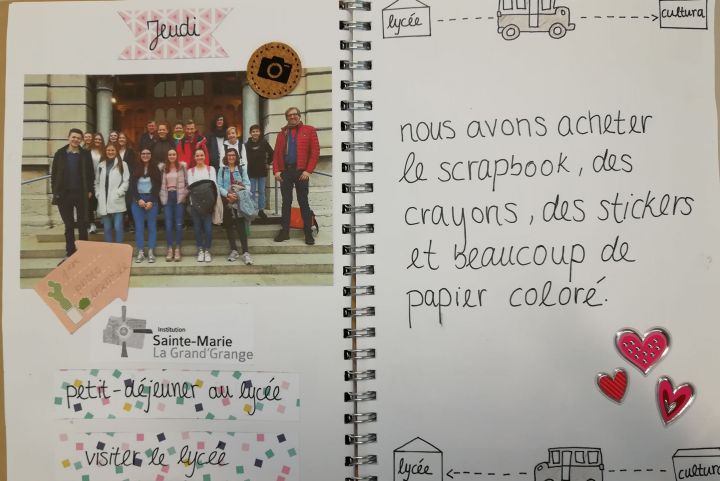 Jeudi
Institution
Sainte-Marie
La Grand'Grange
petit-déjeuner au lycée
visiter le lycée
lycée
cultura
nous avons acheter
le scrapbook, des
crayons, des stickers
et beaucoup de
papier coloré.
lycée
cultura